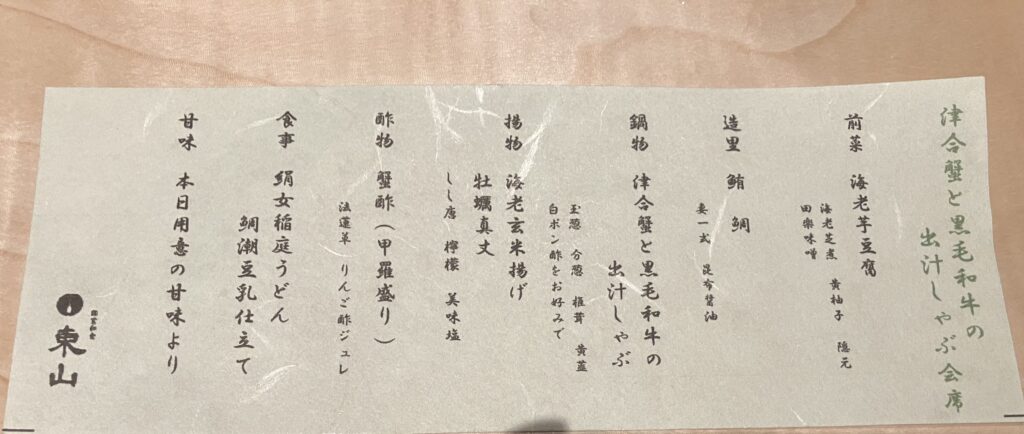 津合蟹と黒毛和牛の
出汁しゃぶ会席
前菜 海老芋豆腐
海老芝煮 黄柚子 隠元
田楽味噌
造里 鮪 鯛
妻一式 昆布醤油
鍋物 津合蟹と黒毛和牛の
出汁しゃぶ
玉葱 分葱 椎茸 黄韮
白ポン酢をお好みで
揚物 海老玄米揚げ
牡蠣真丈
しし唐 檸檬 美味塩
酢物 蟹酢(甲羅盛り)
法蓮草 りんご酢ジュレ
食事 絹女稲庭うどん
鯛潮豆乳仕立て
甘味 本日用意の甘味より
東山